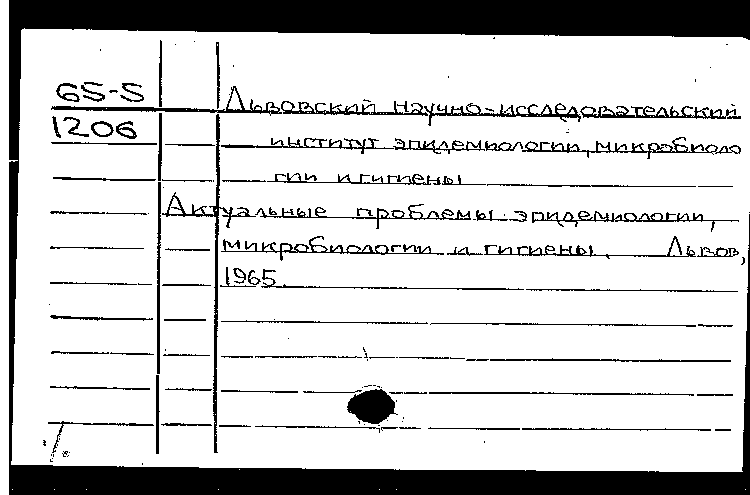 65-5
1206
Львовский научно-исследовательский
институт эпидемиологии, микробиоло
гии и гигиены
Актуальные проблемы эпидемиологии,
микробиологии и гигиены. Львов,
1965.